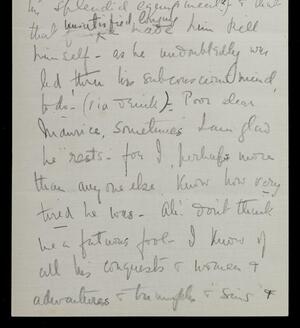 his splendid equipment & that
that unsatisfied, longing
made him kill
himself - as he undoubtedly was
led thru his subconscious mind
to do - (via drink) - Poor dear
Maurice, sometimes I am glad
he rests - for I, perhaps more
than anyone else know how very
tired he was - Ah! Don't think
me a fatuous fool - I know of
all his conquests & women &
adventures & triumphs & "sins" &